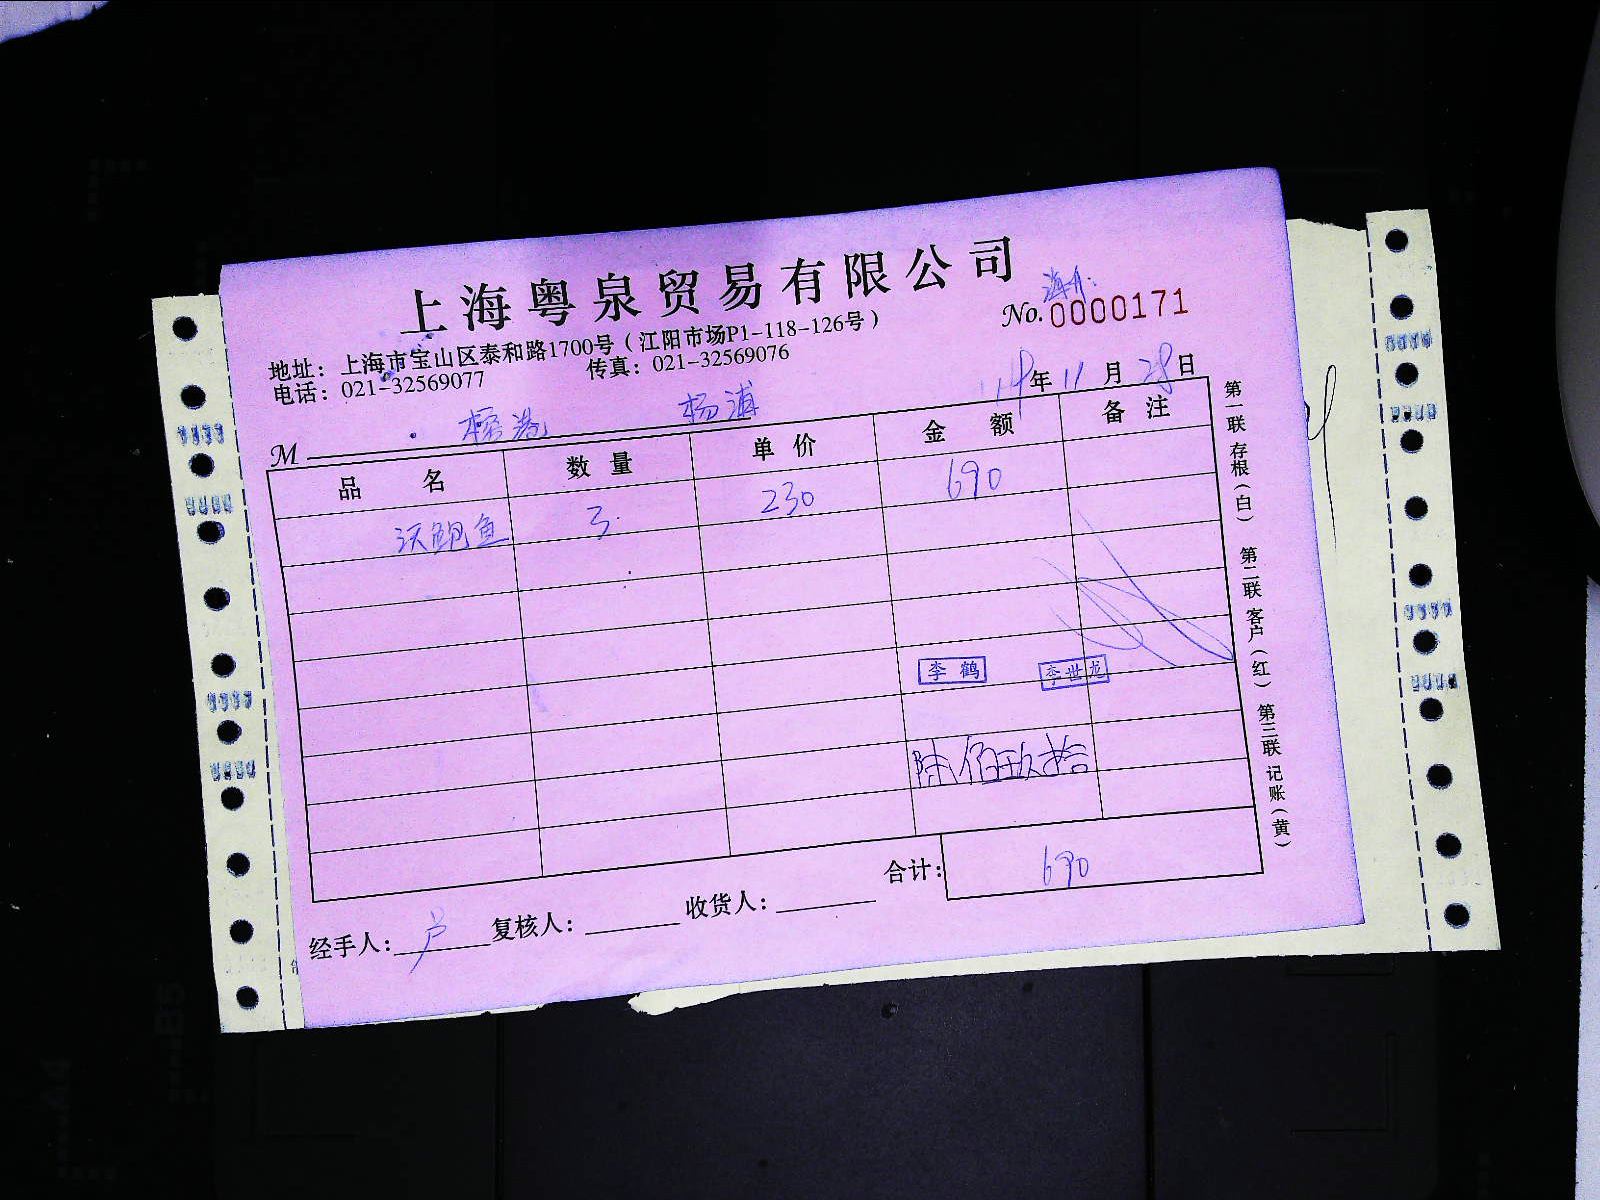 上海粤泉贸易有限公司
No.0000171
地址：上海市宝山区泰和路1700号（江阳市场P1-118-126号）
电话：021-32569077 传真：021-32569076
14年11月28日
M 杨浦
品名 数量 单价 金额 备注
沃鲍鱼 3 230 690
李鹤 李世龙
陆佰玖拾
合计：690
经手人：卢 复核人： 收货人：
第一联 存根（白） 第二联 客户（红） 第三联 记账（黄）